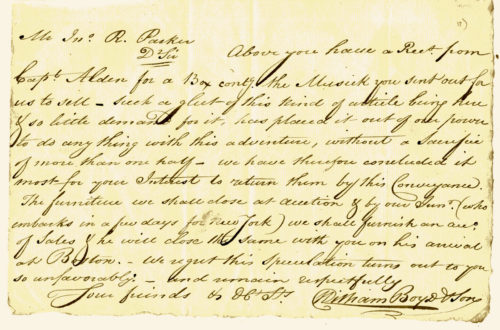 Mr Jno. R. Parker
Dr Sir
Above you have a Rect from
Capt. Alden for a Box contg the Musick you sent out for
us to sell - such a glut of this kind of article being here
& so little demand for it, has placed it out of our power
to do anything with this adventure, without a Sacrifice
of more than one half - we have therefore concluded it
most for your Interest to return them by this Conveyance.
The furniture we shall close at auction & by our Junr. (who
embarks in a few days for New York) we shall furnish an acc.
of Sales & he will close the same with you on his arrival
at Boston. - We regret this speculation turns out to you
so unfavorably - and remain respectfully
Your friends & Ob Sts
William Boyd & Son